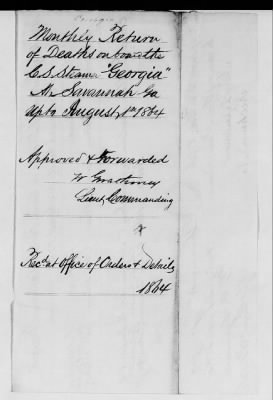 Georgia
Monthly Return
of Deaths on board the
C. S. Steamer "Georgia"
Nr. Savannah Ga
up to August, 1st 1864
Approved & Forwarded
W
Lieut, Commanding
Recd at Office of Orders & Details
1864